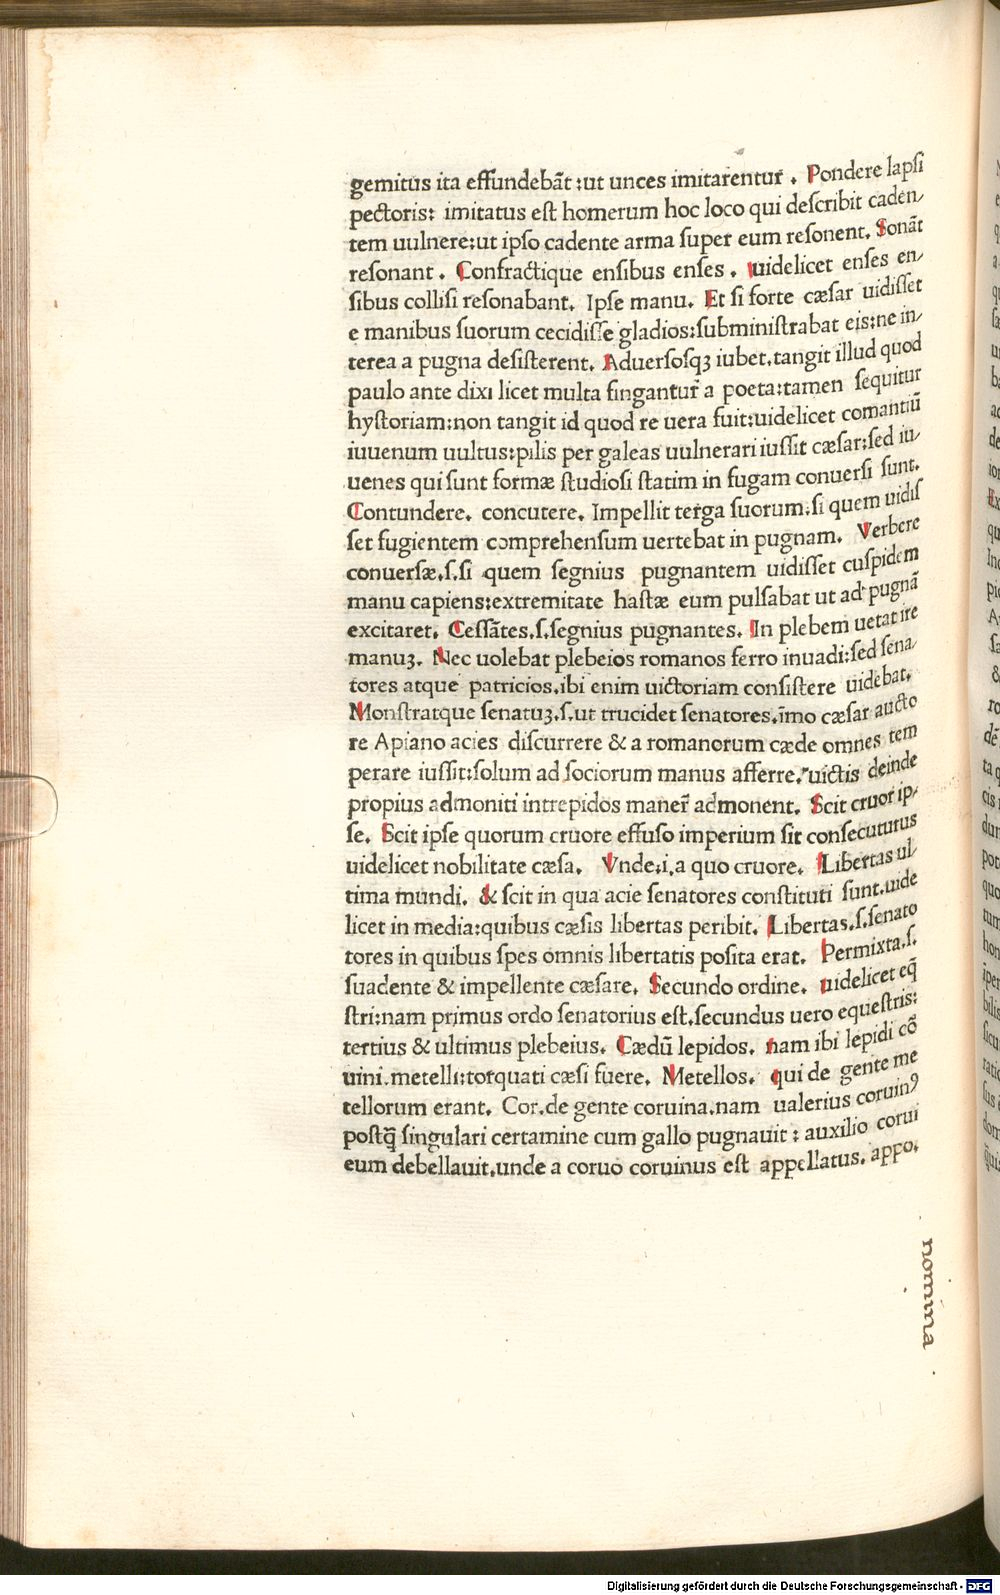 gemitus ita effundebãt:ut unces imitarentur̃. Pondere lapſi
pectoris: imitatus eſt homerum hoc loco qui deſcribit caden⸗
tem uulnere:ut ipſo cadente arma ſuper eum reſonent. Sonãt
reſonant. Confractique enſibus enſes. uidelicet enſes en⸗
ſibus colliſi reſonabant. Ipſe manu. Et ſi forte cæſar uidiſſet
e manibus ſuorum cecidiſſe gladios:ſubminiſtrabat eis:ne in⸗
terea a pugna deſiſterent. Aduerſoſqꝫ iubet.tangit illud quod
paulo ante dixi licet multa fingantur̃ a poeta:tamen ſequitur
hyſtoriam:non tangit id quod re uera fuit:uidelicet comantiũ
iuuenum uultus:pilis per galeas uulnerari iuſſit cæſar:ſed iu⸗
uenes qui ſunt formæ ſtudioſi ſtatim in fugam conuerſi ſunt.
Contundere. concutere. Impellit terga ſuorum.ſi quem uidiſ
ſet fugientem comprehenſum uertebat in pugnam. Verbere
conuerſæ.ſ.ſi quem ſegnius pugnantem uidiſſet cuſpidem
manu capiens:extremitate haſtæ eum pulſabat ut ad pugnã
excitaret. Ceſſãtes.ſ.ſegnius pugnantes. In plebem uetat ire
manuꝫ. Nec uolebat plebeios romanos ferro inuadi:ſed ſena⸗
tores atque patricios.ibi enim uictoriam conſiſtere uidebat.
Monſtratque ſenatuꝫ.ſ.ut trucidet ſenatores.ĩmo cæſar aucto
re Apiano acies diſcurrere & a romanorum cæde omnes tem
perare iuſſit:ſolum ad ſociorum manus afferre. uictis deinde
propius admoniti intrepidos maner̃ admonent. Scit cruor ip⸗
ſe. Scit ipſe quorum cruore effuſo imperium ſit conſecuturus
uidelicet nobilitate cæſa. Vnde.i.a quo cruore. Libertas ul⸗
tima mundi. & ſcit in qua acie ſenatores conſtituti ſunt.uide
licet in media:quibus cæſis libertas peribit. Libertas.ſ.ſenato
tores in quibus ſpes omnis libertatis poſita erat. Permixta.ſ.
ſuadente & impellente cæſare. Secundo ordine. uidelicet eq̃
ſtri:nam primus ordo ſenatorius eſt.ſecundus uero equeſtris:
tertius & ultimus plebeius. Cædũ lepidos. nam ibi lepidi cõ
uini.metelli:torquati cæſi fuere. Metellos. qui de gente me
tellorum erant. Cor.de gente coruina.nam ualerius coruinꝰ
poſtq̃ ſingulari certamine cum gallo pugnauit: auxilio corui
eum debellauit.unde a coruo coruinus eſt appellatus. appo.
nomina
Digitalisierung gefördert durch die Deutsche Forschungsgemeinschaft - DFG